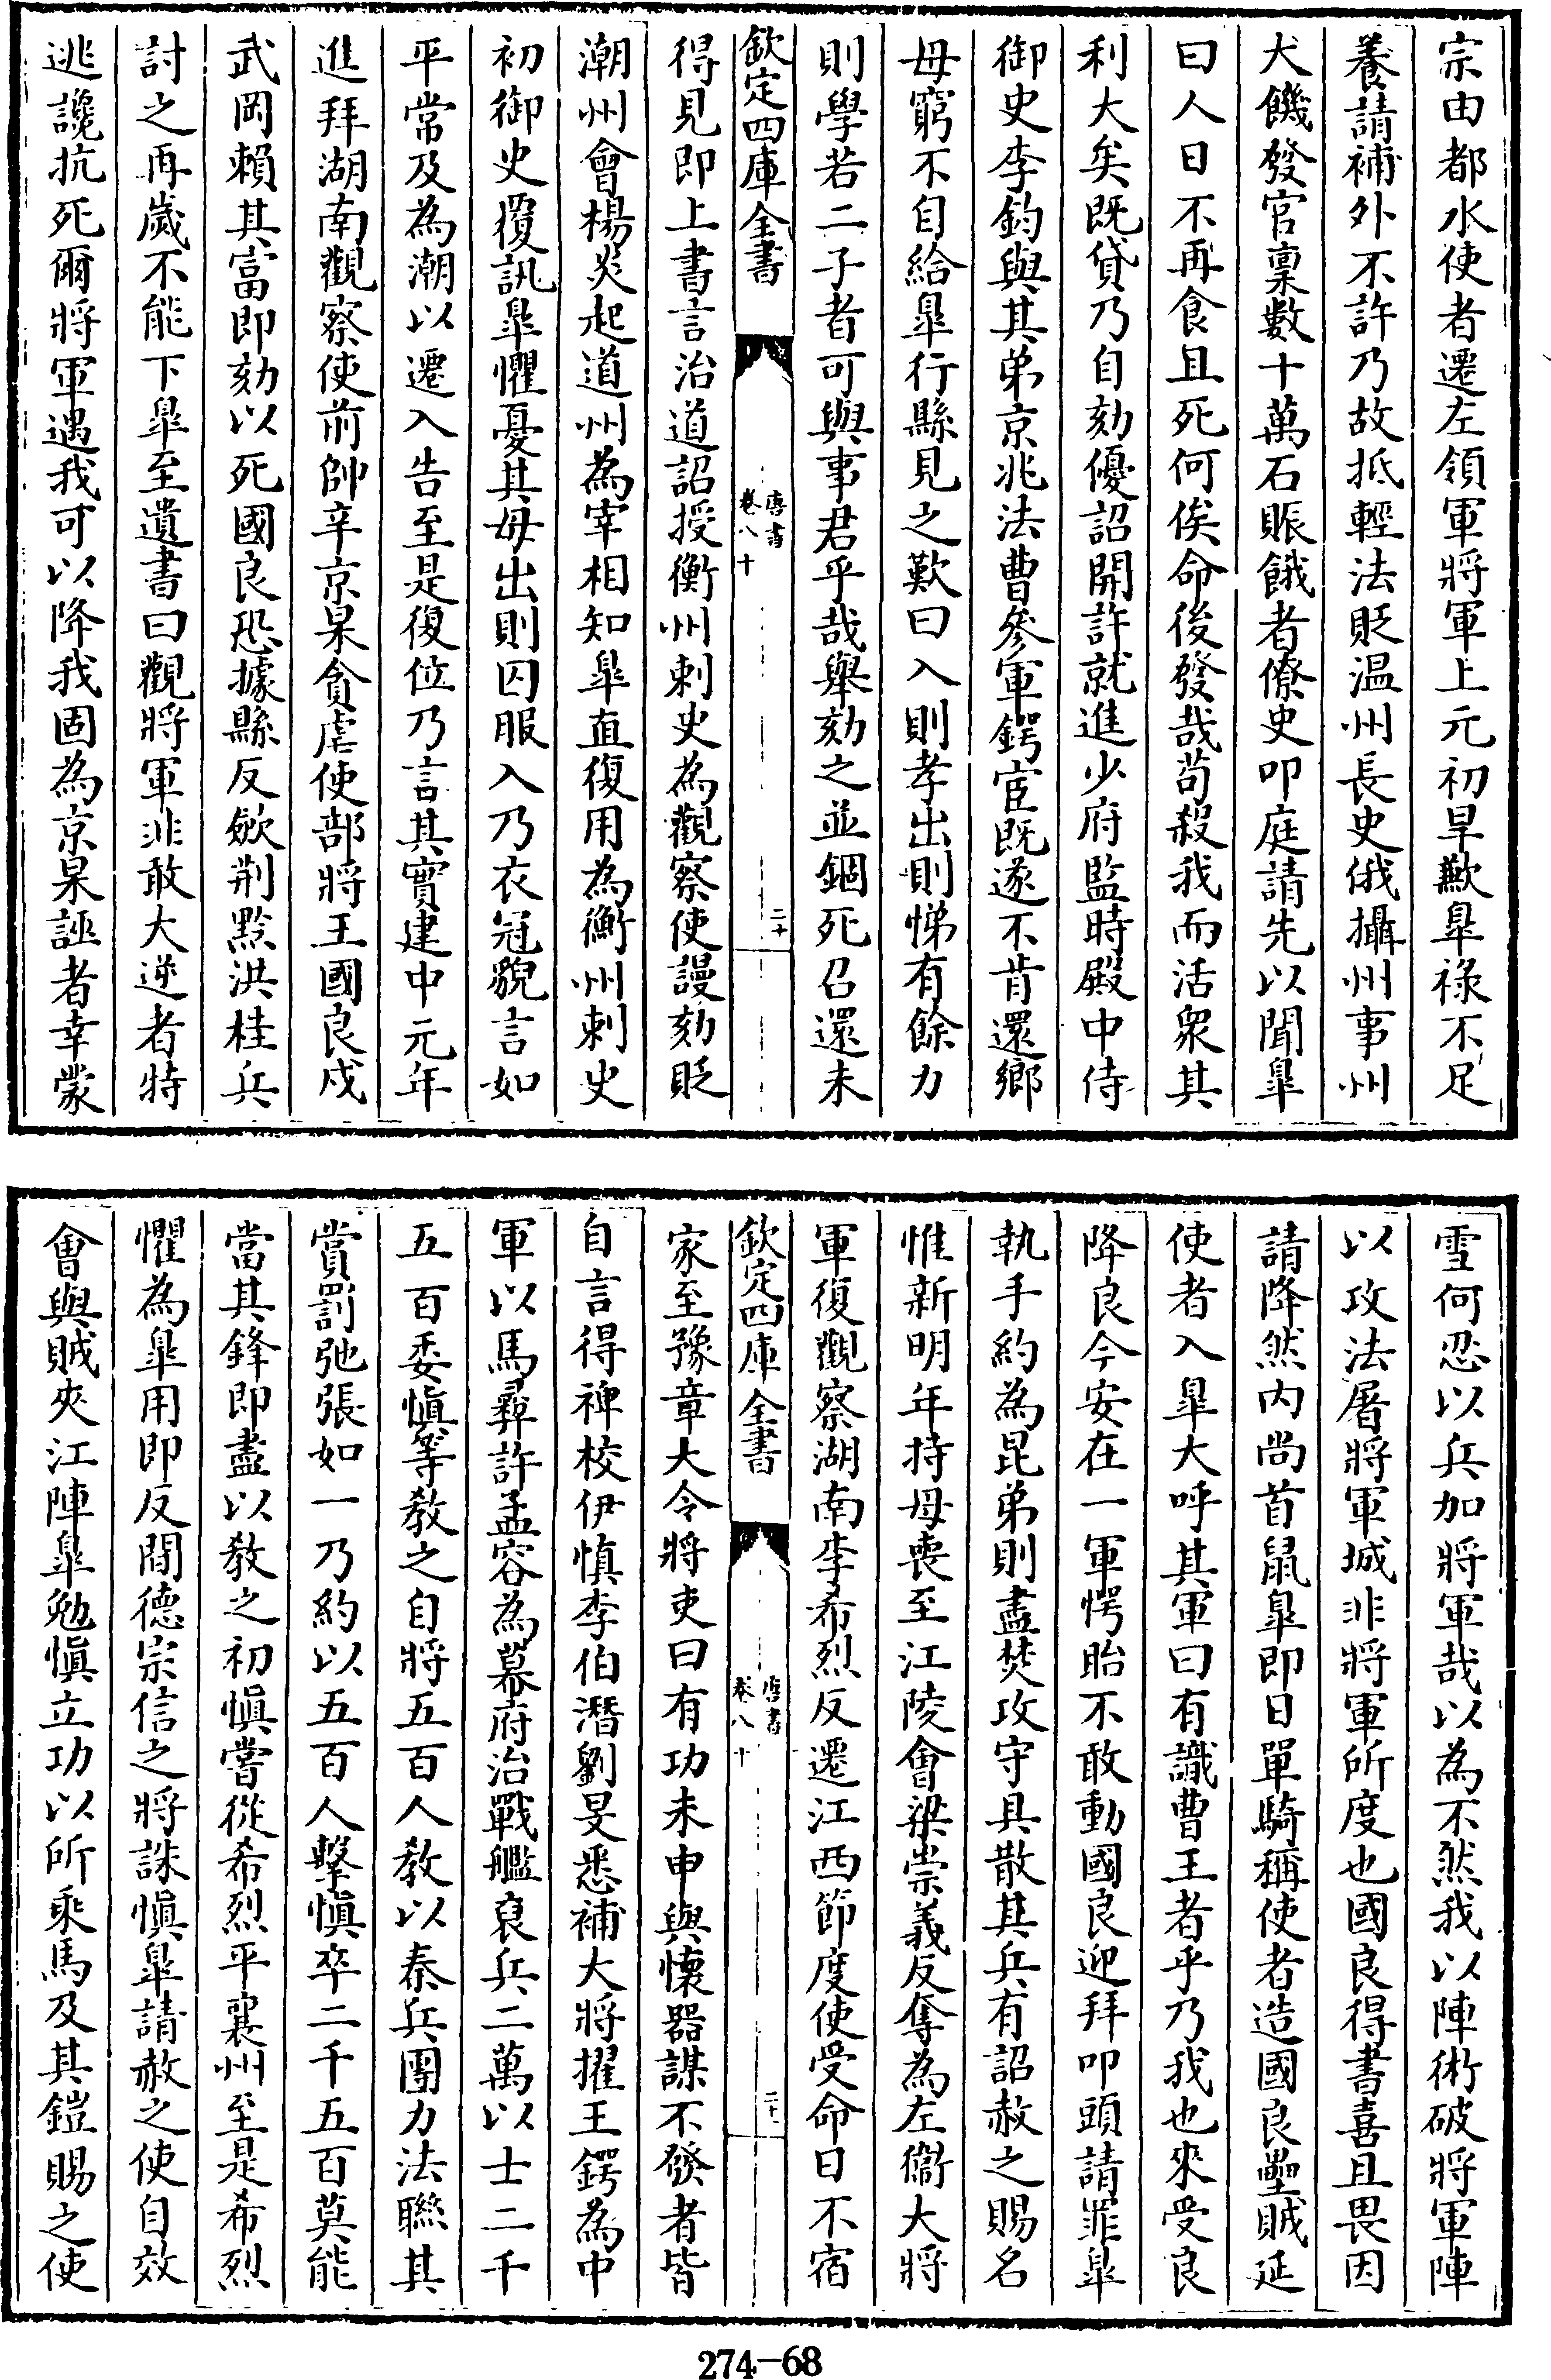 宗由都水使者遷左領軍將軍上元初旱歉臯祿不足
養請補外不許乃故抵輕法貶温州長史俄攝州事州
大饑發官稟數十萬石賑餓者僚史叩庭請先以聞臯
曰人日不再食且死何俟命後發哉苟殺我而活衆其
利大矣既貸乃自劾優詔開許就進少府監時殿中侍
御史李鈞與其弟京兆法曹參軍鍔宦既遂不肯還鄉
母窮不自給臯行縣見之歎曰入則孝出則悌有餘力
則學若二子者可與事君乎哉舉劾之並錮死召還未
欽定四庫全書
唐書
卷八十
二十
得見即上書言治道詔授衡州刺史為觀察使謾劾貶
潮州會楊炎起道州為宰相知臯直復用為衡州刺史
初御史覆訊臯懼憂其母出則囚服入乃衣冠貌言如
平常及為潮以遷入告至是復位乃言其實建中元年
進拜湖南觀察使前帥辛京杲貪虐使部將王國良戍
武岡賴其富即劾以死國良恐據縣反歛荆黔洪桂兵
討之再歲不能下臯至遺書曰觀將軍非敢大逆者特
逃讒抗死爾將軍遇我可以降我固為京杲誣者幸蒙
雪何忍以兵加將軍哉以為不然我以陣術破將軍陣
以攻法屠將軍城非將軍所度也國良得書喜且畏因
請降然内尚首鼠臯即日單騎稱使者造國良壘賊延
使者入臯大呼其軍曰有識曹王者乎乃我也來受良
降良今安在一軍愕眙不敢動國良迎拜叩頭請罪臯
執手約為昆弟則盡焚攻守具散其兵有詔赦之賜名
惟新明年持母喪至江陵會梁崇義反奪為左衞大將
軍復觀察湖南李希烈反遷江西節度使受命日不宿
欽定四庫全書
唐書
卷八十
二十一
家至豫章大令將吏曰有功未申與懷器謀不發者皆
自言得裨校伊慎李伯潛劉旻悉補大將擢王鍔為中
軍以馬彞許孟容為幕府治戰艦裒兵二萬以士二千
五百委慎等教之自將五百人教以秦兵團力法聯其
賞罰弛張如一乃約以五百人擊慎卒二千五百莫能
當其鋒即盡以教之初慎嘗從希烈平襄州至是希烈
懼為臯用即反間德宗信之將誅慎臯請赦之使自效
會與賊夾江陣臯勉慎立功以所乘馬及其鎧賜之使
274-68